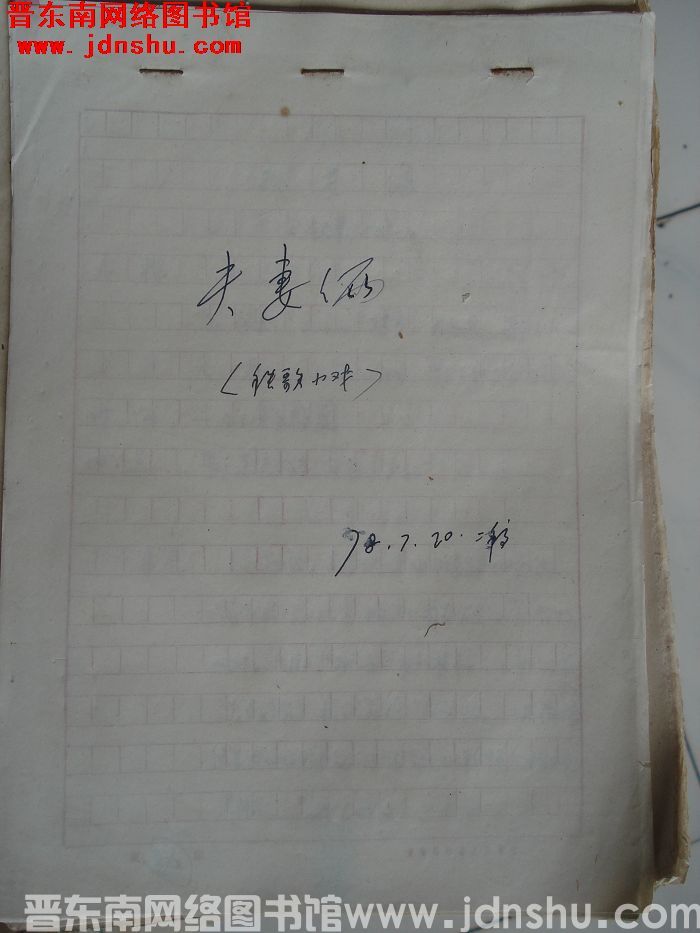 晋东南网络图书馆
www.jdnshu.com
夫妻俩
（秧歌小戏）
78.7.20.二稿
晋东南网络图书馆www.jdnshu.com